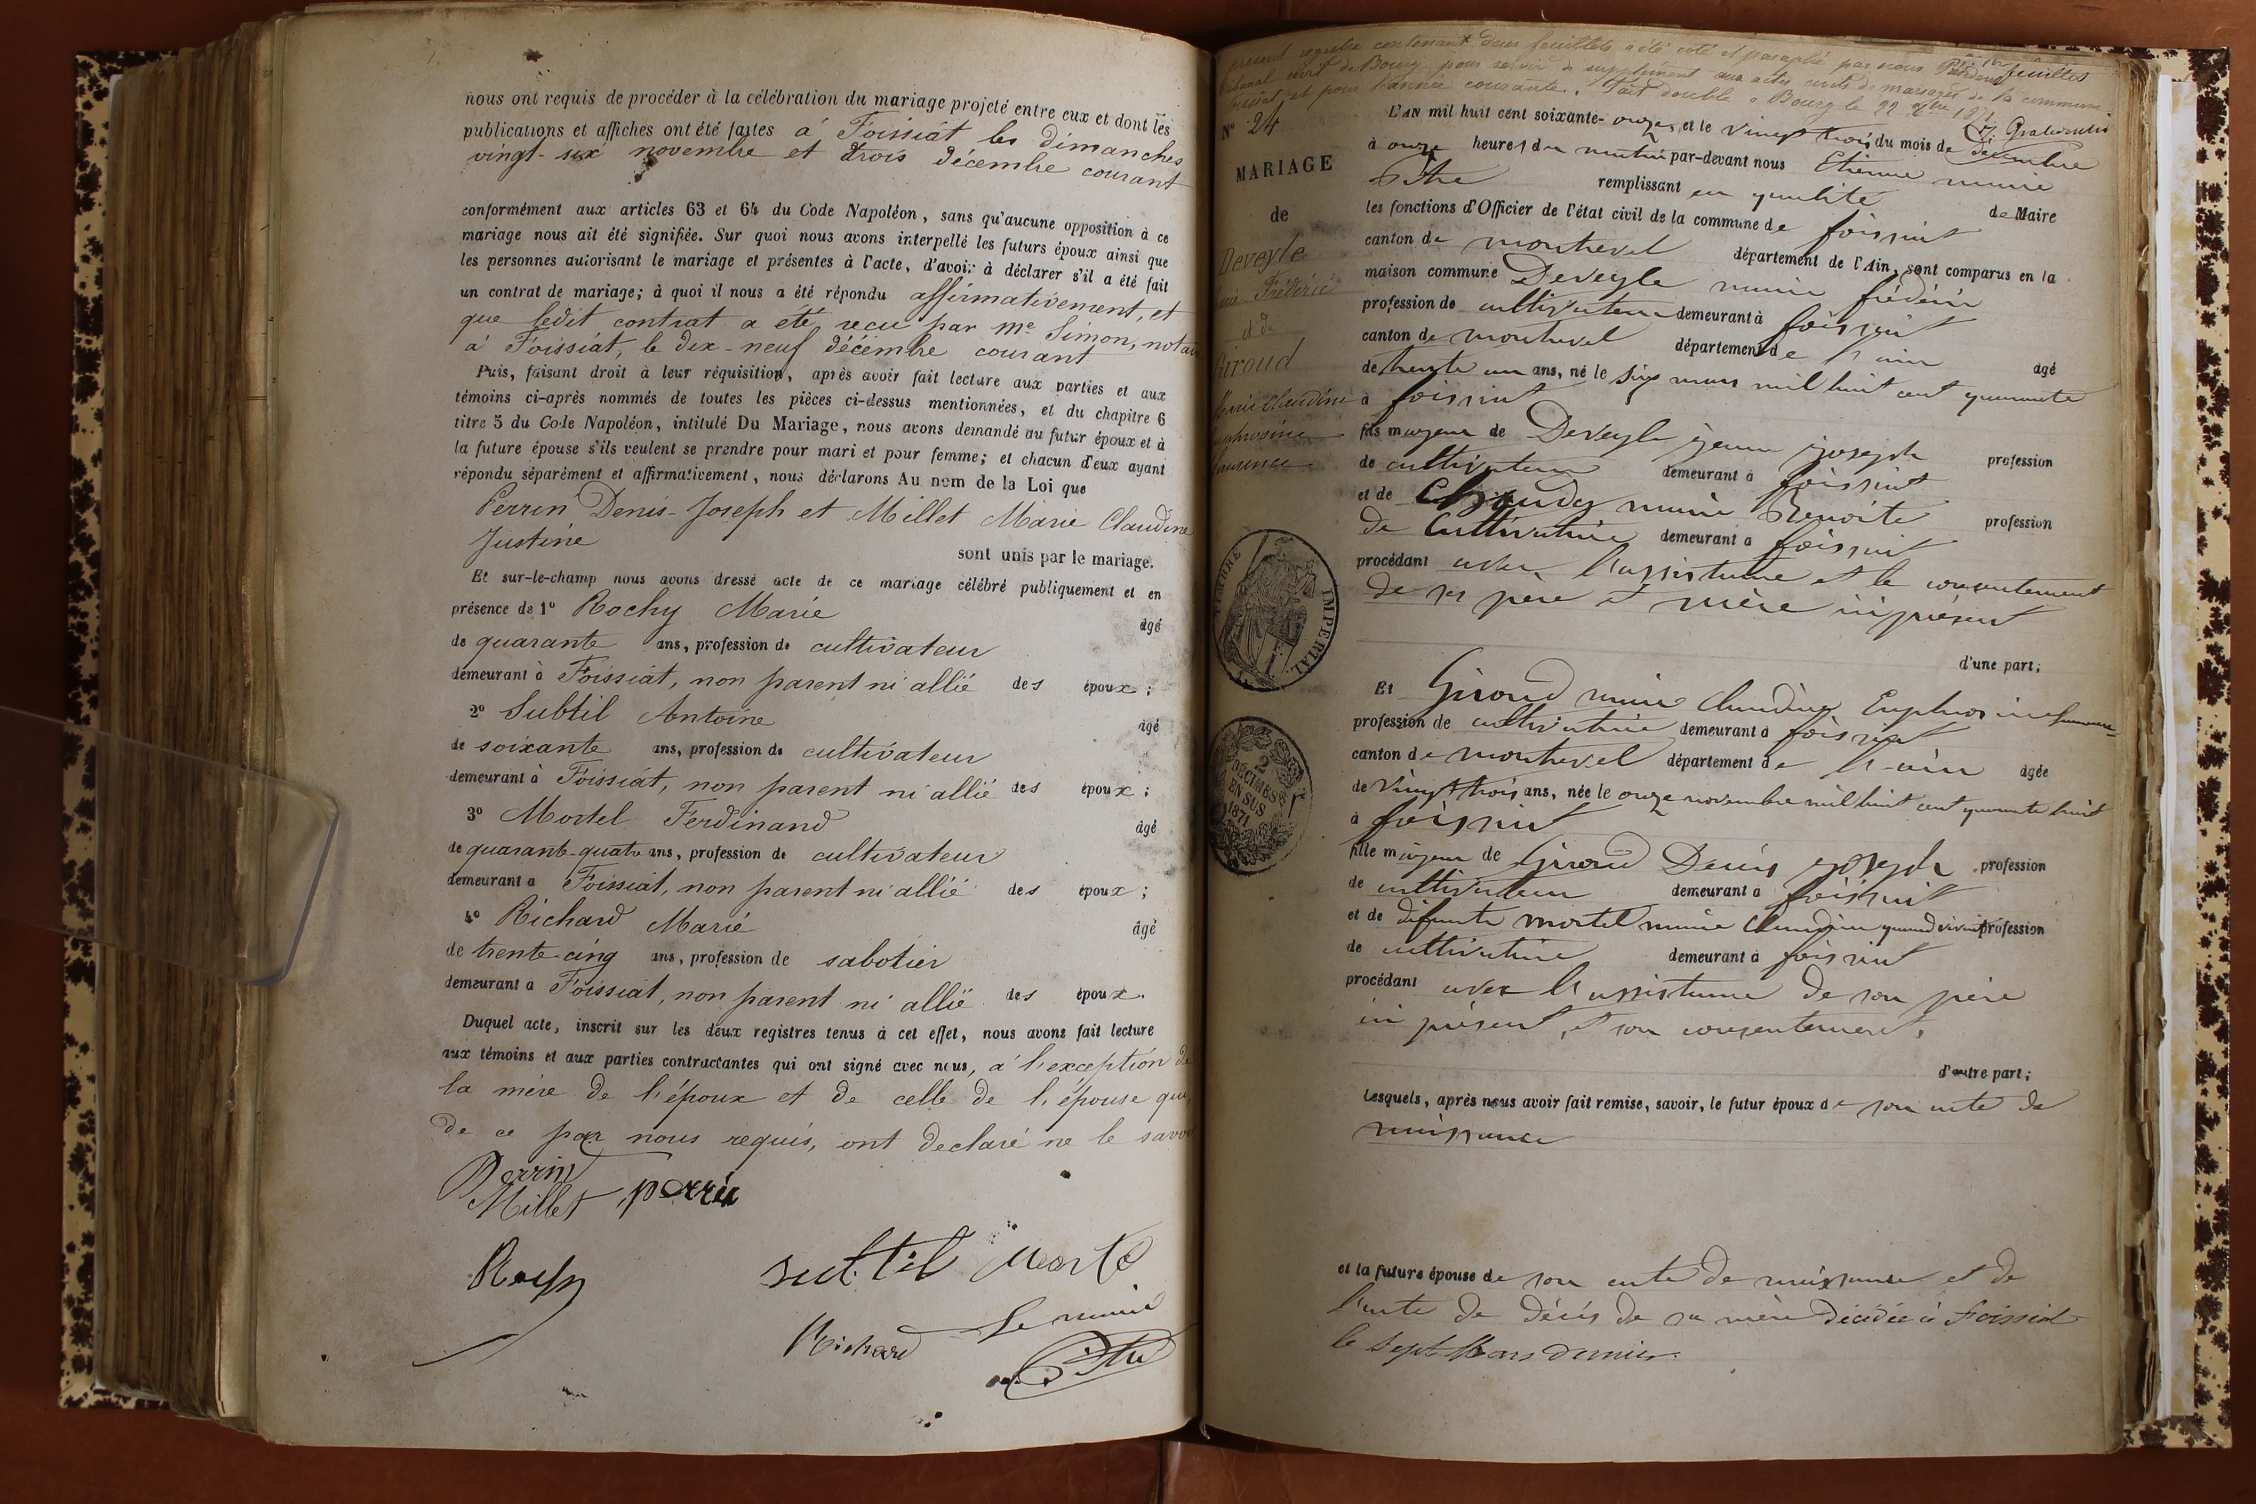 nous ont requis de procéder à la célébration du mariage projeté entre eux et dont les
publications et affiches ont été faites à Foissiat les dimanches
vingt-six novembre et trois décembre courant
conformément aux articles 63 et 64 du Code Napoléon, sans qu'aucune opposition à ce
mariage nous ait été signifiée. Sur quoi nous avons interpellé les futurs époux ainsi que
les personnes autorisant le mariage et présentes à l'acte, d'avoir à déclarer s'il a été fait
un contrat de mariage; à quoi il nous a été répondu affirmativement, et
que ledit contrat a été reçu par Me Simon, notaire
à Foissiat, le dix-neuf décembre courant
Puis, faisant droit à leur réquisition, après avoir fait lecture aux parties et aux
témoins ci-après nommés de toutes les pièces ci-dessus mentionnées, et du chapitre 6
titre 5 du Code Napoléon, intitulé Du Mariage, nous avons demandé au futur époux et à
la future épouse s'ils veulent se prendre pour mari et pour femme; et chacun d'eux ayant
répondu séparément et affirmativement, nous déclarons Au nom de la Loi que
Perrin Denis-Joseph et Millet Marie Claudine
Justine
sont unis par le mariage.
Et sur-le-champ nous avons dressé acte de ce mariage célébré publiquement et en
présence de 1° Rochy Marie âgé
de quarante ans, profession de cultivateur
demeurant à Foissiat, non parent ni allié des époux;
2° Subtil Antoine âgé
de soixante ans, profession de cultivateur
demeurant à Foissiat, non parent ni allié des époux;
3° Mortel Ferdinand âgé
de quarante-quatre ans, profession de cultivateur
demeurant à Foissiat, non parent ni allié des époux;
4° Richard Marie âgé
de trente-cinq ans, profession de sabotier
demeurant à Foissiat, non parent ni allié des époux.
Duquel acte, inscrit sur les deux registres tenus à cet effet, nous avons fait lecture
aux témoins et aux parties contractantes qui ont signé avec nous, à l'exception de
la mère de l'époux et de celle de l'épouse qui,
de ce par nous requis, ont declaré ne le savoir
Perrin
Millet perrin
Rochy subtil Mortel
Richard Le maire
Pitre
présent registre contenant deux feuillets a été coté et paraphé par nous Président
tribunal civil de Bourg pour servir de supplément aux actes civils de mariages de la commune
Foissiat et pour l'année courante. Fait double à Bourg le 22 Xbre 1871
feuillet
N° 24
MARIAGE
de
Deveyle
Marie Frédéric
et de
Giroud
Marie Claudine
Euphrosine
Laurence
TIMBRE IMPERIAL
2 DECIMES EN SUS 1871
L'AN mil huit cent soixante-onze, et le vingt trois du mois de décembre
à onze heures du matin par-devant nous Etienne marie
Pitre remplissant en qualité de Maire
les fonctions d'Officier de l'état civil de la commune de foissiat
canton de montrevel département de l'Ain, sont comparus en la
maison commune Deveyle marie frédéric
profession de cultivateur demeurant à foissiat
canton de montrevel département de l'ain âgé
de trente un ans, né le six mars mil huit cent quarante
à foissiat
fils majeur de Deveyle jean joseph profession
de cultivateur demeurant à foissiat
et de Chaudy marie Benoite profession
de Cultivatrice demeurant à foissiat
procédant avec l'assistance et le consentement
de ses père et mère ici présent
d'une part;
Et Giroud marie Claudine Euphrosine Laurence
profession de cultivatrice demeurant à foissiat
canton de montrevel département de l'ain âgée
de vingt trois ans, née le onze novembre mil huit cent quarante huit
à foissiat
fille majeur de Giroud Denis joseph profession
de cultivateur demeurant à foissiat
et de défunte mortel marie Claudine quand vivait profession
de cultivatrice demeurant à foissiat
procédant avec l'assistance de son père
ici présent, et son consentement,
d'autre part;
Lesquels, après nous avoir fait remise, savoir, le futur époux de son acte de
naissance
et la future épouse de son acte de naissance et de
l'acte de décès de sa mère décédée à Foissiat
le sept Mars dernier.